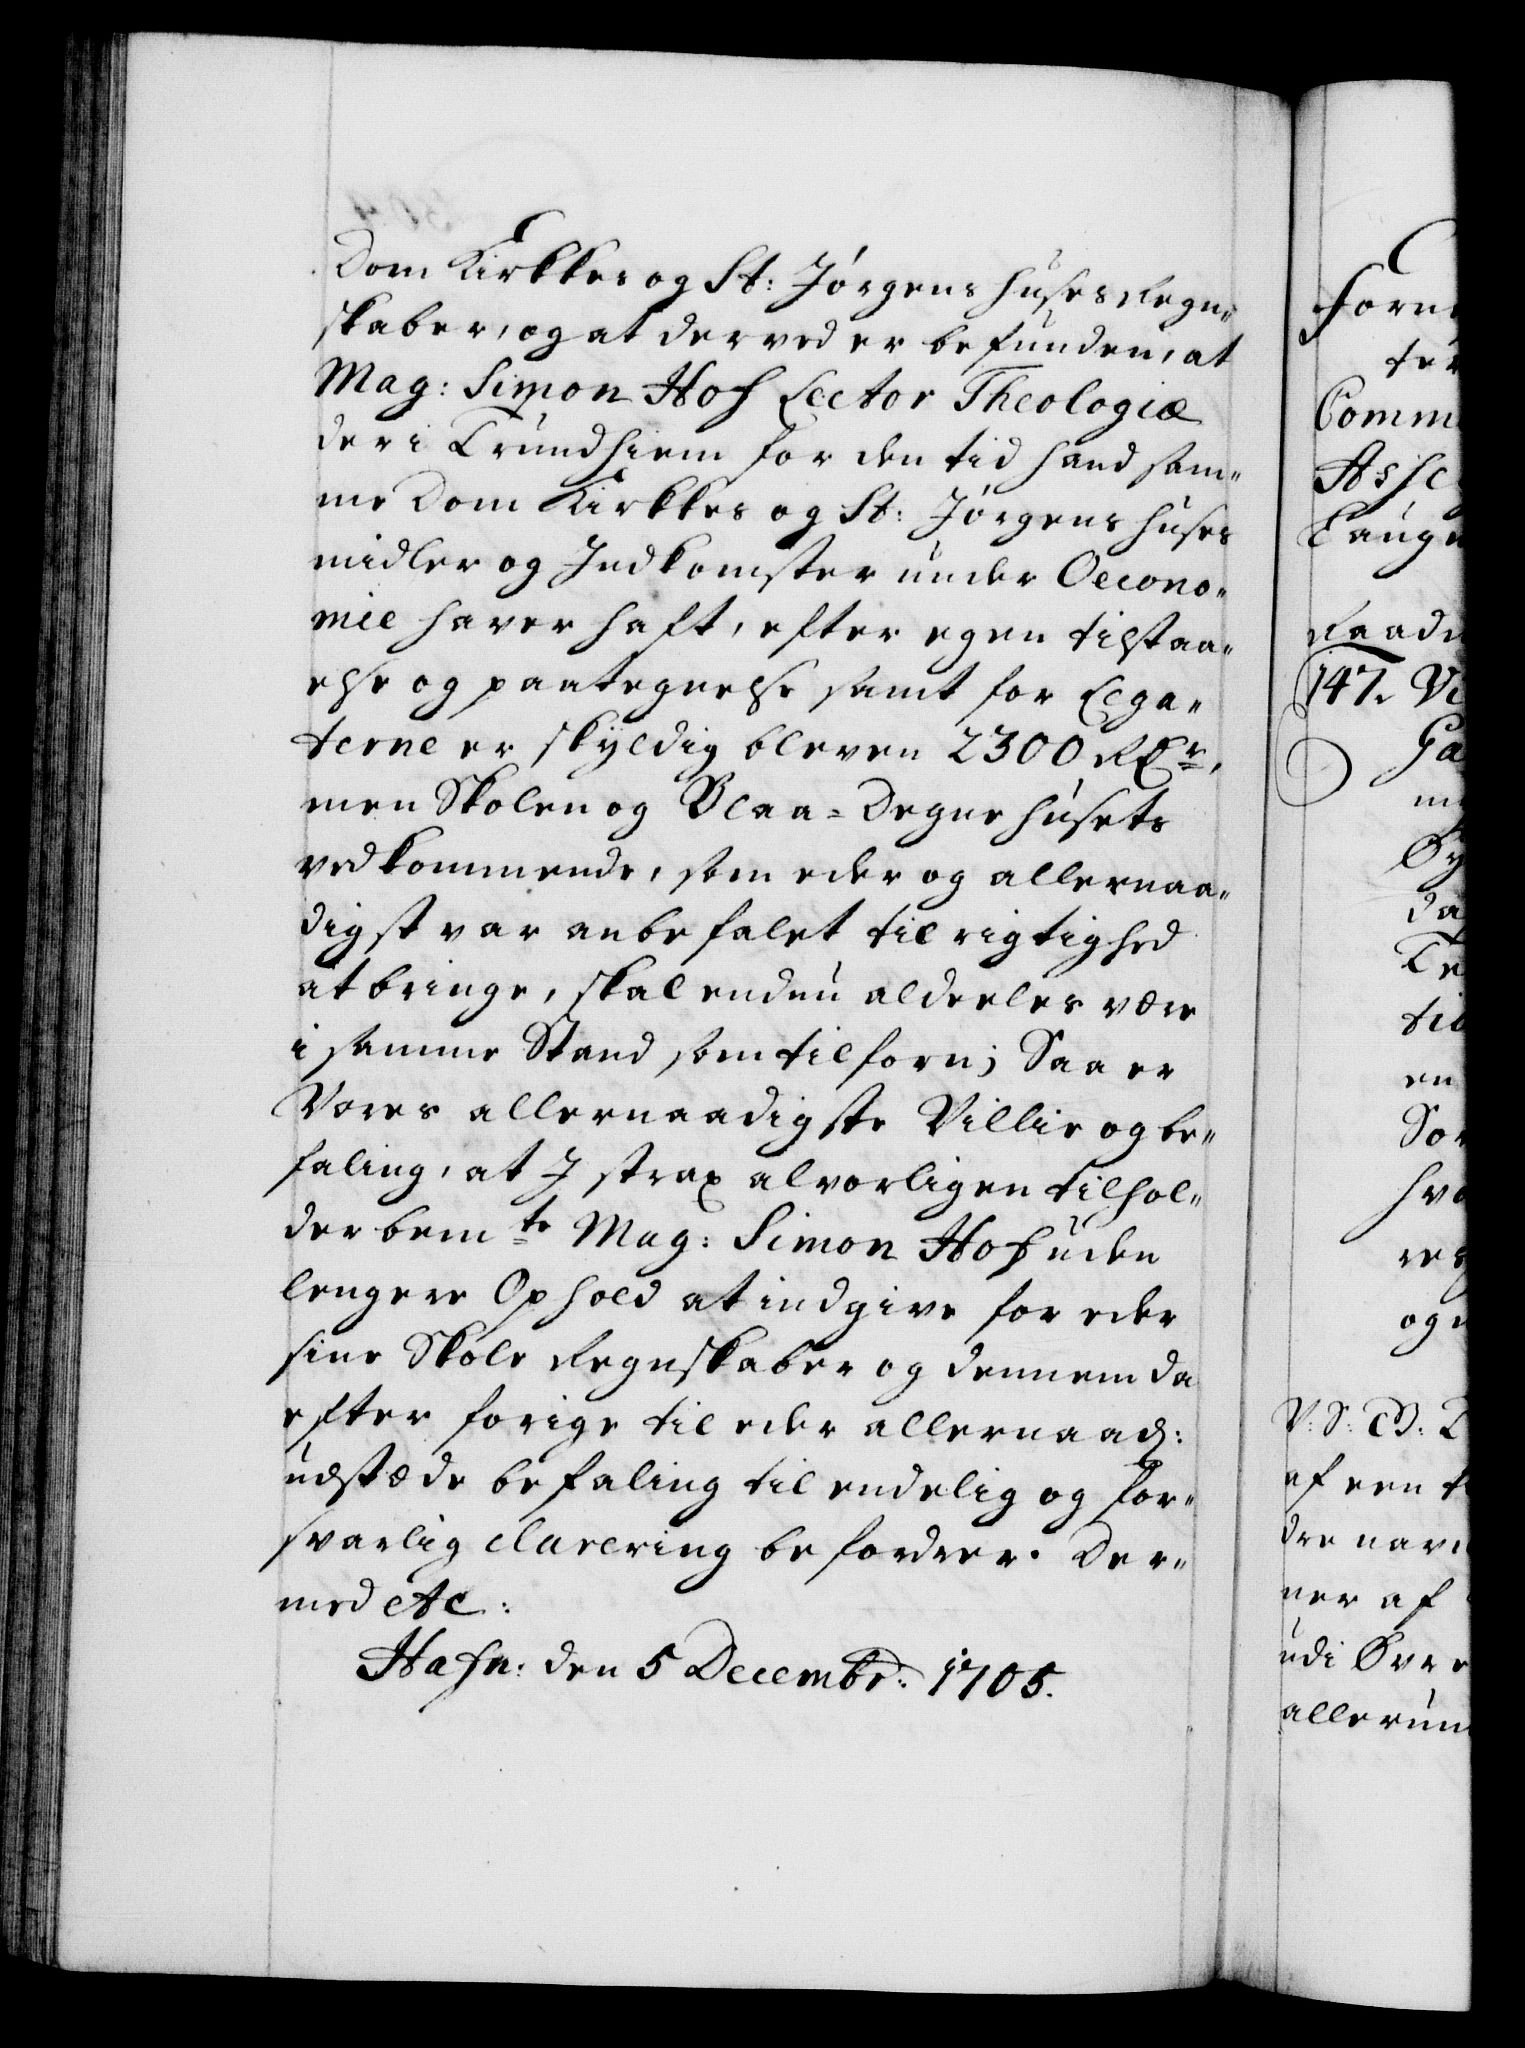 Dom Kirkkes og St: Jørgens huses Regn-
skaber, og at derved er befunden, at
Mag: Simon Hof Lector Theologiæ
der i Trundhiem for den tid hand sam-
me Dom Kirkkes og St: Jørgens huses
midler og Indkomster under Oecono-
mie haver haft, efter egen tilstaa-
else og paategnelse samt for Lega-
terne er skyldig bleven 2300 Rdr,
men Skolen og Blaa-Degnehusets
vedkommende, som eder og allernaa-
digst var anbefalet til rigtighed
at bringe, skal endnu aldeeles være
i samme Stand som tilforn; Saa er
Vores allernaadigste Villie og be-
faling, at I strax alvorligen tilhol-
der bemte Mag: Simon Hof uden
lengere Ophold at indgive for eder
sine Skole Regnskaber og dennem da
efter forige til eder allernaad:
udstæde befaling til endelig og for-
svarlig clarering befordrer. Der-
med etc:
Hafn: den 5 Decembr: 1705.
Forn
ter
Comm
Asse
Laugm
Raadm
147. Vi
Ga
Sy
da
Te
tid
en
Sor
hvo
res
og
V: S: G: T
af een t
dre nav
ner af
udi Øvre
allerun